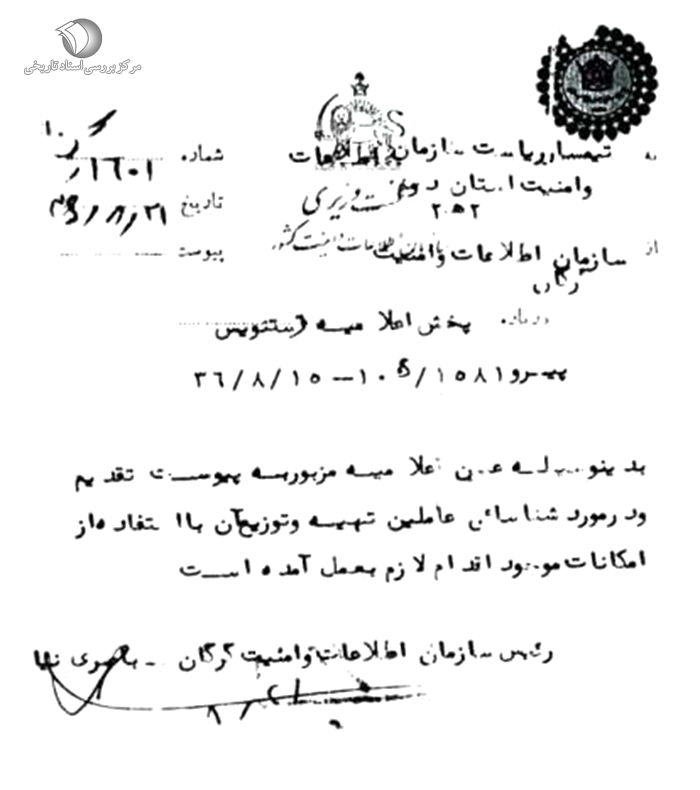 مرکز بررسی اسناد تاریخی
به تیمسار ریاست سازمان اطلاعات
وامنیت استان دوم
نخست وزیری
۲۵۲
سازمان اطلاعات و امنیت کشور
شماره ۱۶۰۱
تاریخ
پیوست
از سازمان اطلاعات وامنیت
گرگان
درباره پخش اعلامیه دستنویس
پیرو ۱۵۸۱/ ۱۰ﻫ – ۳۶/۸/۱۵
بدینوسیله عین اعلامیه مزبور به پیوست تقدیم
ودرمورد شناسائی عاملین تهیه وتوزیع آن با استفاده از
امکانات موجود اقدام لازم بعمل آمده است
رئیس سازمان اطلاعات وامنیت گرگان –